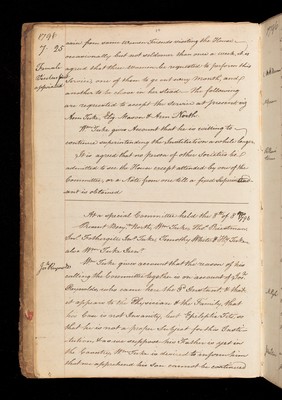 1798
7. 25
Female
Visitors first
appointed
sum from some women Friends visiting the House
occasionally but not seldomer than once a week, it is
agreed that three women be requested to perform this
Service, one of them to go out every Month, and
another to be chosen in her stead. The following
are requested to accept the Service at present viz
Ann Tuke, Eliz. Mason & Ann North.
Wm. Tuke gives Account that he is willing to
continue superintending the Institution a while longer
It is agreed that no person of other Societies be
admitted to see the House except attended by one of the
Committee, or a Note from one till a fixed Superintend
ant is obtained
At a special Committee held the 8th of 8 mo 1798
Present Benj. North, Wm. Tuke, Thos. Priestman
Saml. Fothergill, Wm. Tuke Junr.
also
Jos. Reynolds
Wm. Tuke gives account that the reason of his
calling the Committee together is on account of Jos.
Reynolds, who came here the 3d. Instant, & that
it appears to the Physician & the Family, that
his Case is not Insanity, but Epileptic Fits, so
that he is not a proper Subject for this Insti-
tution, & as we suppose his Father is yet in
the Country, Wm. Tuke is desired to inform him
that we apprehend his Son cannot be continued